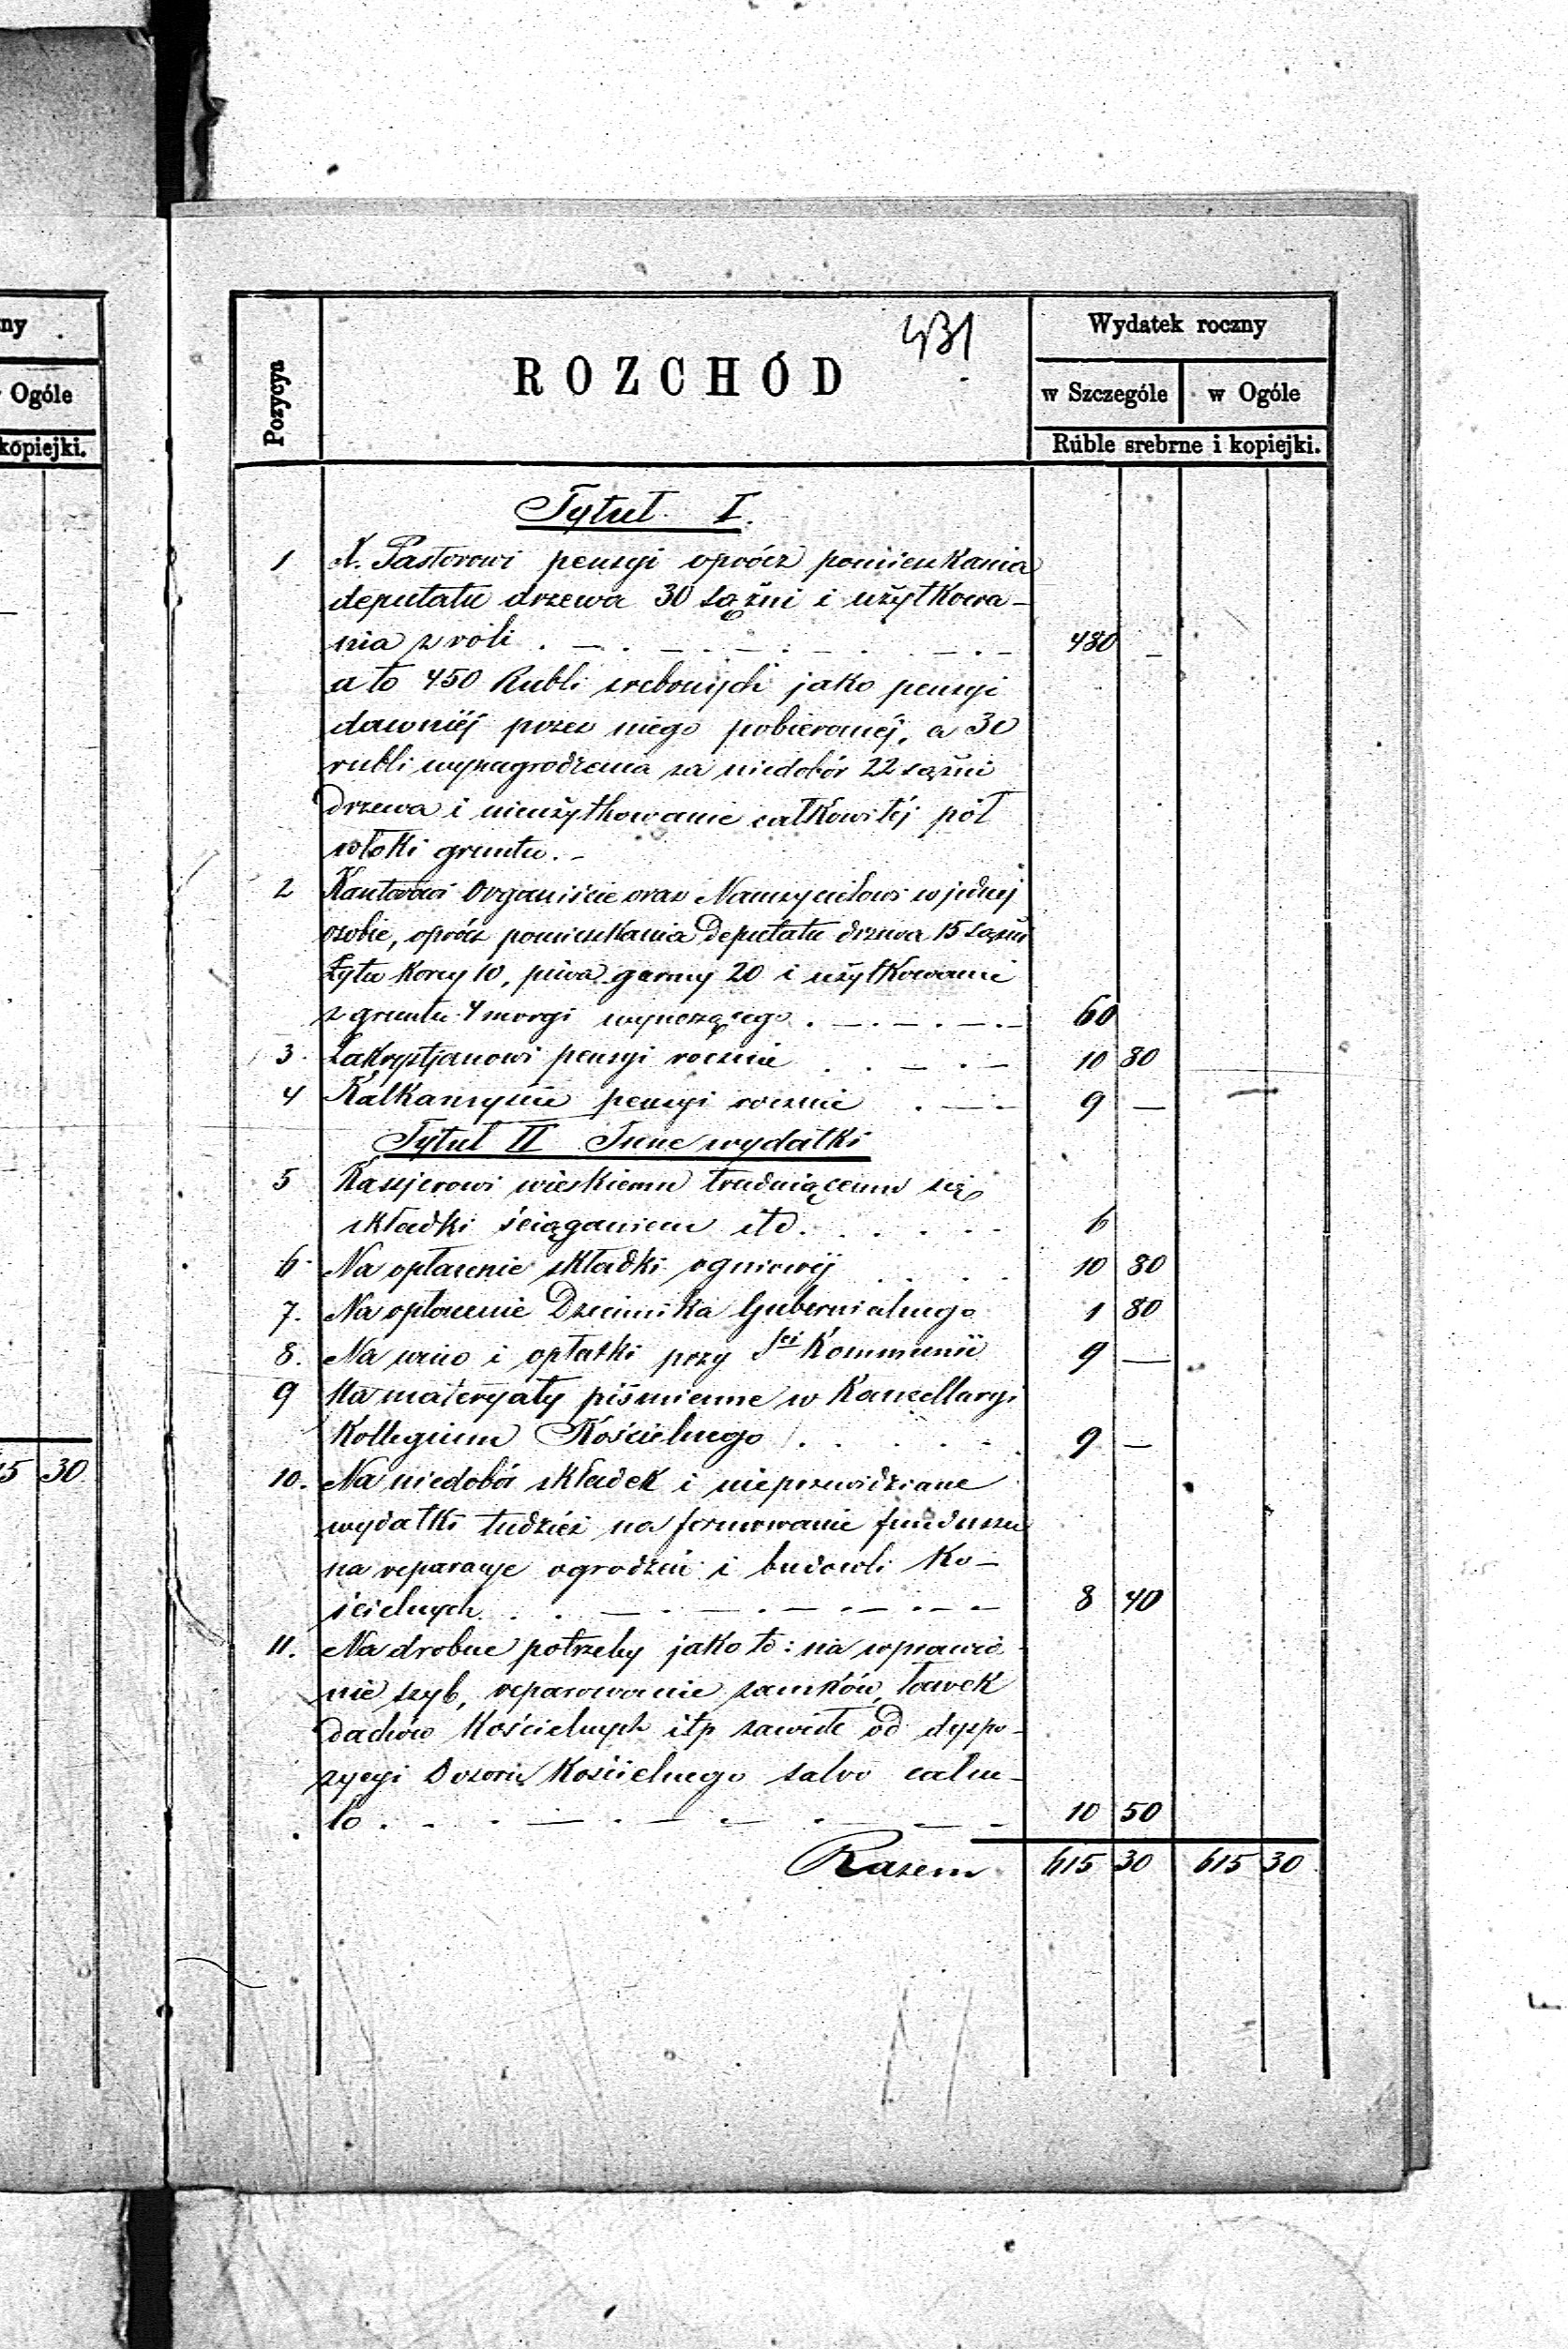 ny
Ogóle
kopiejki.
15 30
431
Pozycya
ROZCHÓD
Wydatek roczny
w Szczególe w Ogóle
Ruble srebrne i kopiejki.
Tytuł I.
1 X. Pastorowi pensyi oprócz pomieszkania
deputatu drzewa 30 sążni i użytkowa-
nia z roli 480 —
a to 450 Rubli srebrnych jako pensyi
dawniéj przez niego pobieranéj, a 30
rubli wynagrodzenia za niedobór 22 sążni
drzewa i nieużytkowanie całkowitéj pół
włóki gruntu. –
2 Kantorowi Organiście oraz Nauczycielowi w jednéj
osobie, oprócz pomieszkania Deputatu drzewa 15 sążni
Żyta Korcy 10, piwa garncy 20 i użytkowanie
z gruntu 4 morgi wynoszącego 60
3 Zakrystjanowi pensyi rocznie 10 80
4 Kalkanszyście pensyi rocznie 9 —
Tytuł II Inne wydatki
5 Kassjerowi wieskiemu trudniącemu się
składki ściąganiem itd. 6
6 Na opłacenie składki ogniowéj 10 80
7. Na opłacenie Dziennika Gubernialnego 1 80
8. Na wino i opłatki przy Śtéj Kommunii 9 —
9 Na materyały piśmienne w Kancellaryi
Kollegium Kościelnego 9 —
10. Na niedobór składek i nieprzewidziane
wydatki tudzież na formowanie funduszu
na reparacye ogrodzeń i budowli Ko-
ścielnych 8 40
11. Na drobne potrzeby jako to: na wprawie-
nie szyb, reparowanie zamków, ławek
dachów Kościelnych itp zawisłe od dyspo-
zycyi Dozoru Kościelnego salvo calcu-
lo 10 50
Razem 615 30 615 30